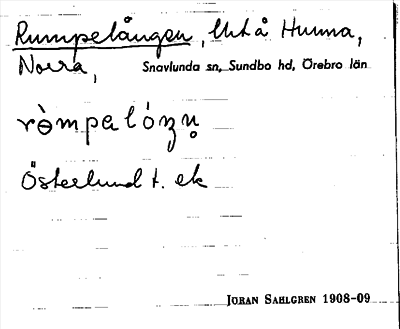 Rumpelången, Urtå Hunna,
Norra,
Snavlunda sn, Sundbo hd, Örebro län
Österlund t. ek
JÖRAN SAHLGREN 1908-09